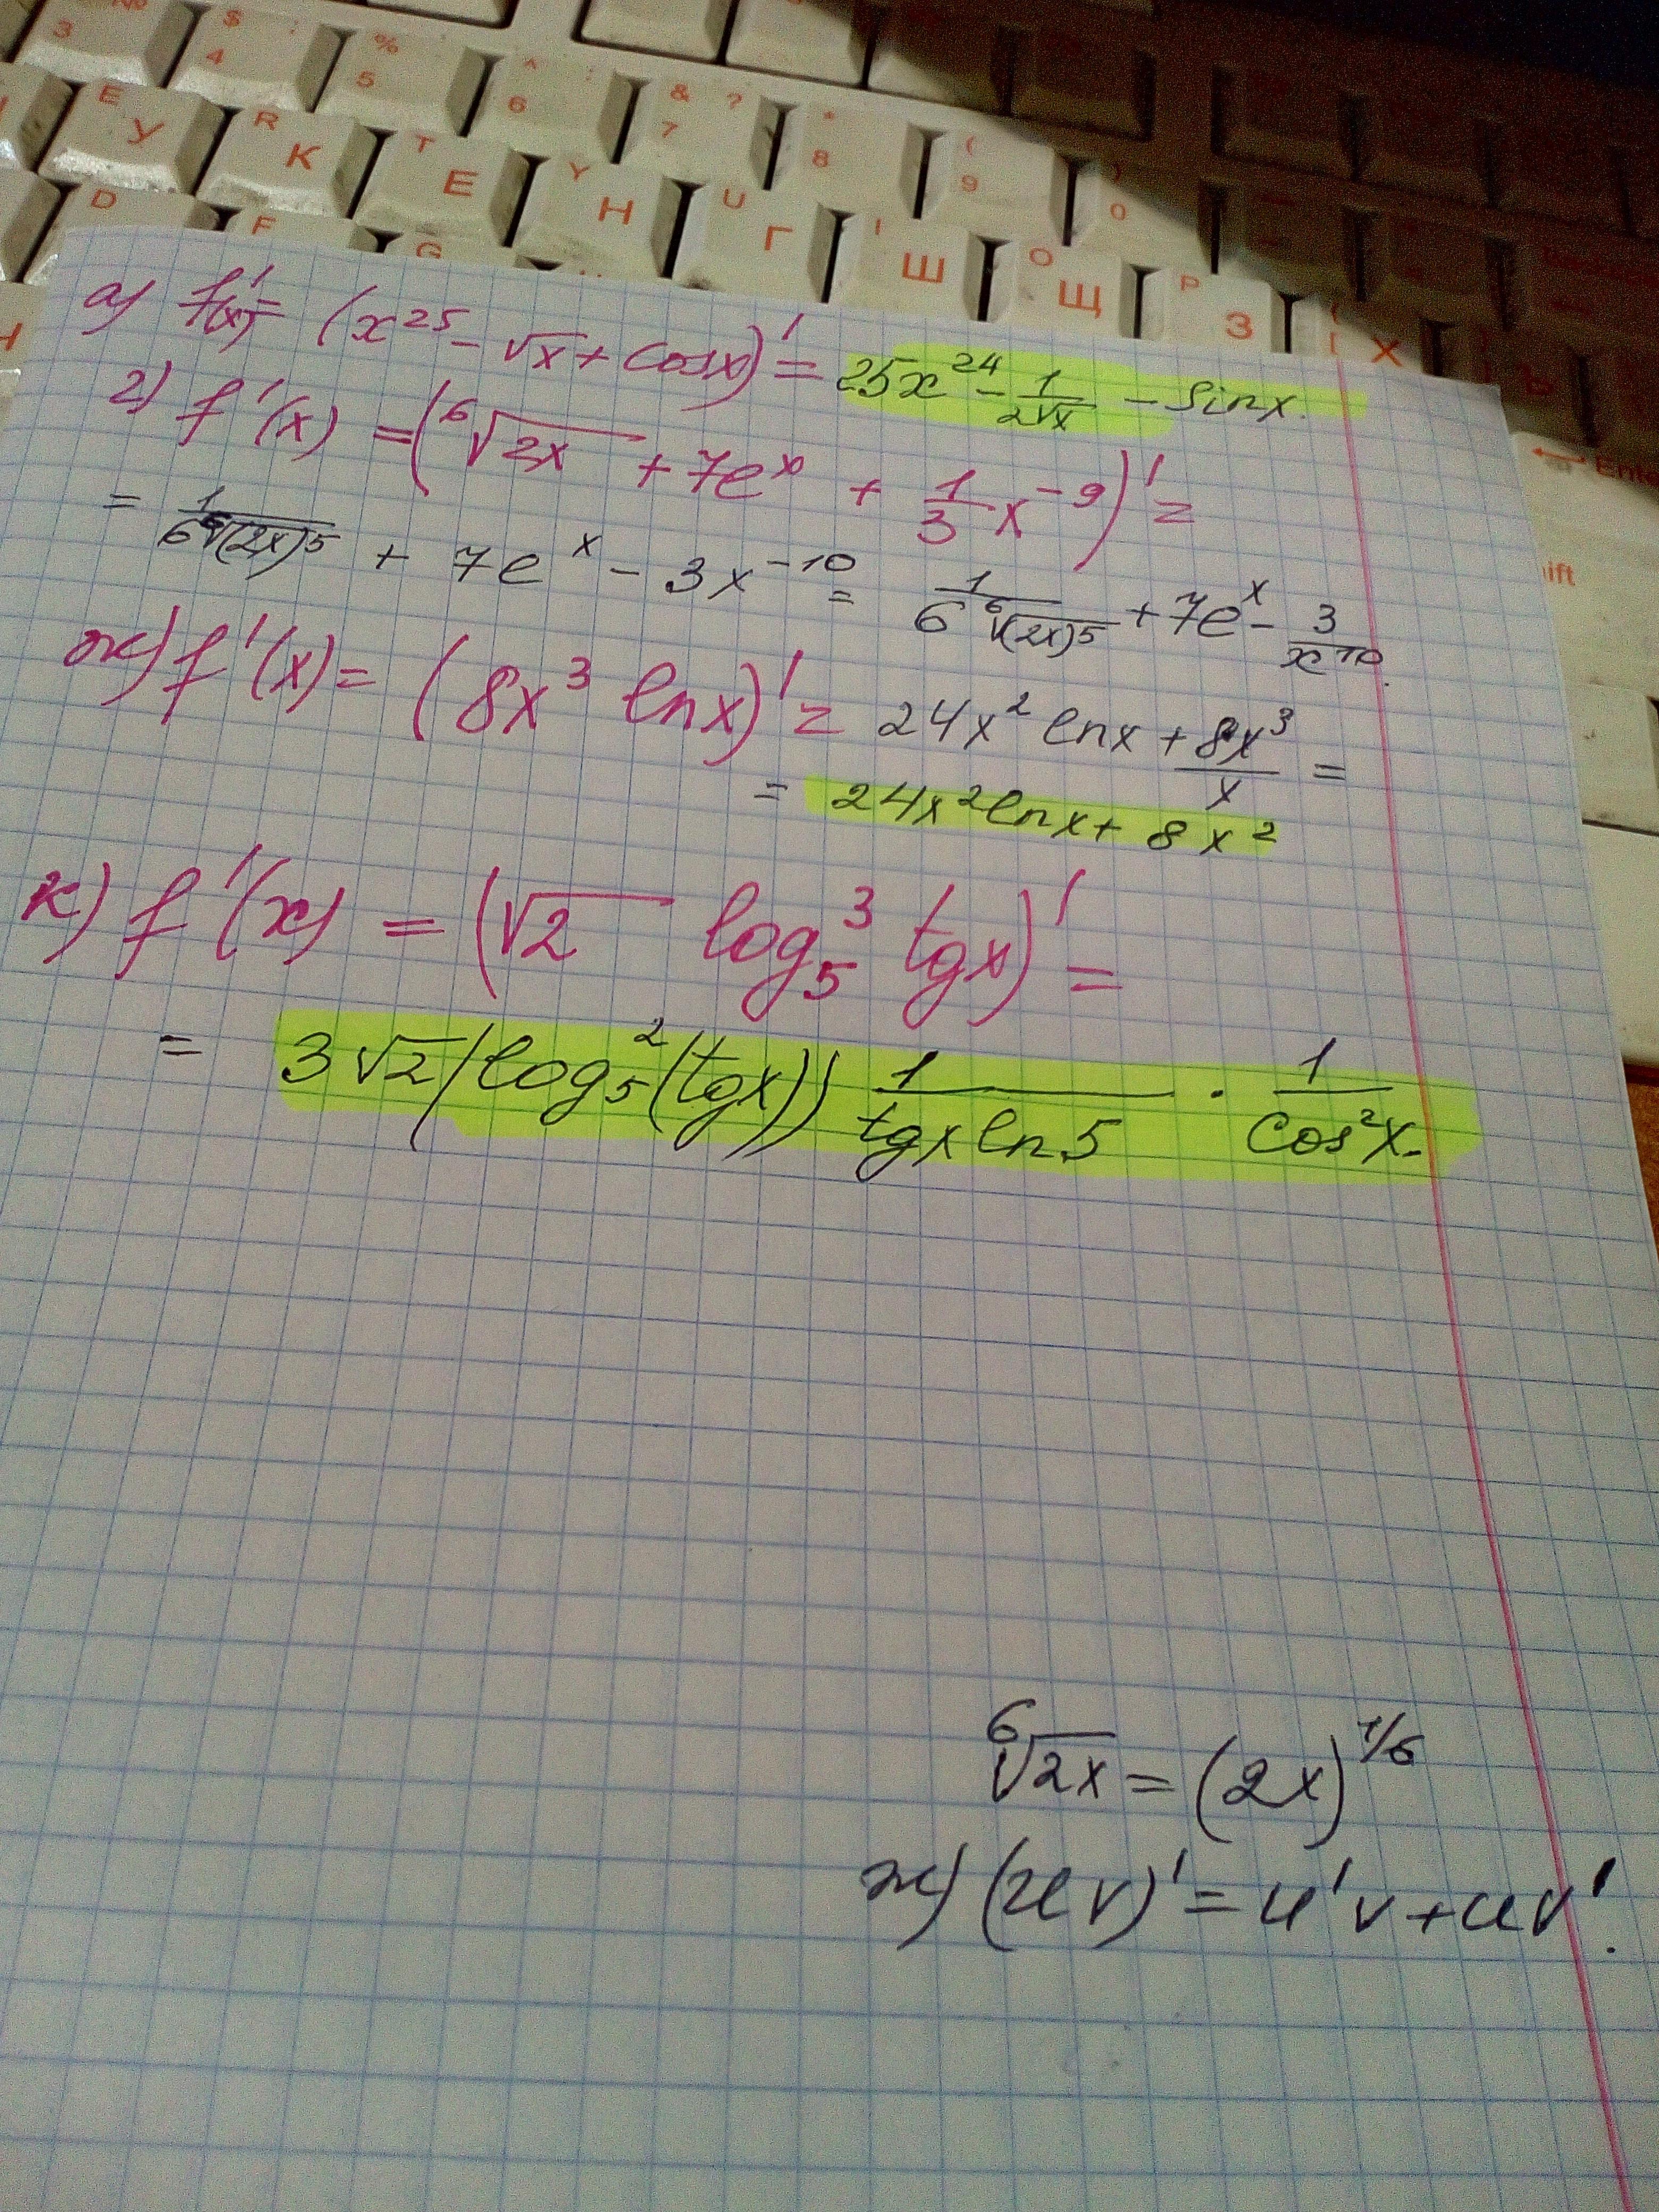 №
3
$ ;
4
% :
5
^ :
6
& ?
7
*
8
(
9
)
0
E У
R К
T Е
Y Н
U Г
I Ш
O Щ
P З
{ [ Х
Ъ
Enter
D
F
G
ift
а) f'(x) = (x²⁵ - √x + cosx)' = 25x²⁴ - 1/(2√x) - sinx.
г) f'(x) = (⁶√2x + 7eˣ + 1/3 x⁻⁹)' =
= 1/(6 ⁶√(2x)⁵) + 7eˣ - 3x⁻¹⁰ = 1/(6 ⁶√(2x)⁵) + 7eˣ - 3/x¹⁰.
ж) f'(x) = (8x³ lnx)' = 24x² lnx + 8x³/x =
= 24x² lnx + 8x²
к) f'(x) = (√2 log₅³ tgx)' =
= 3√2 (log₅²(tgx)) 1/(tgx ln5) · 1/cos²x.
⁶√2x = (2x)^1/6
ж) (uv)' = u'v + uv'.